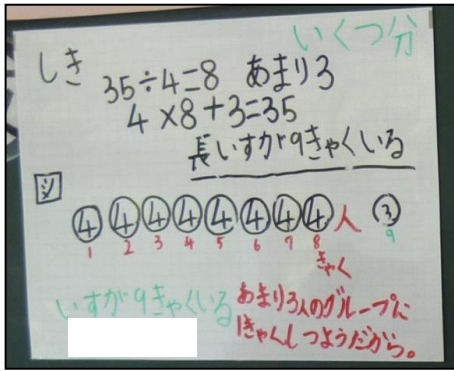 いくつ分
しき
35÷4=8 あまり3
4×8+3=35
長いすが9きゃくいる
図
④④④④④④④④人 ③
1 2 3 4 5 6 7 8 9
きゃく
いすが9きゃくいる
あまり3人のグループに
1きゃくひつようだから。